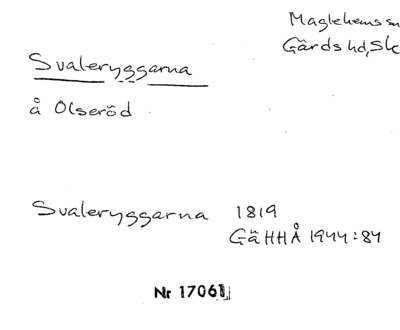 Maglehems sn
Gärds hd, Sk
Svaleryggarna
å Olseröd
Svaleryggarna 1819
GäHHÅ 1944:84
Nr 17061